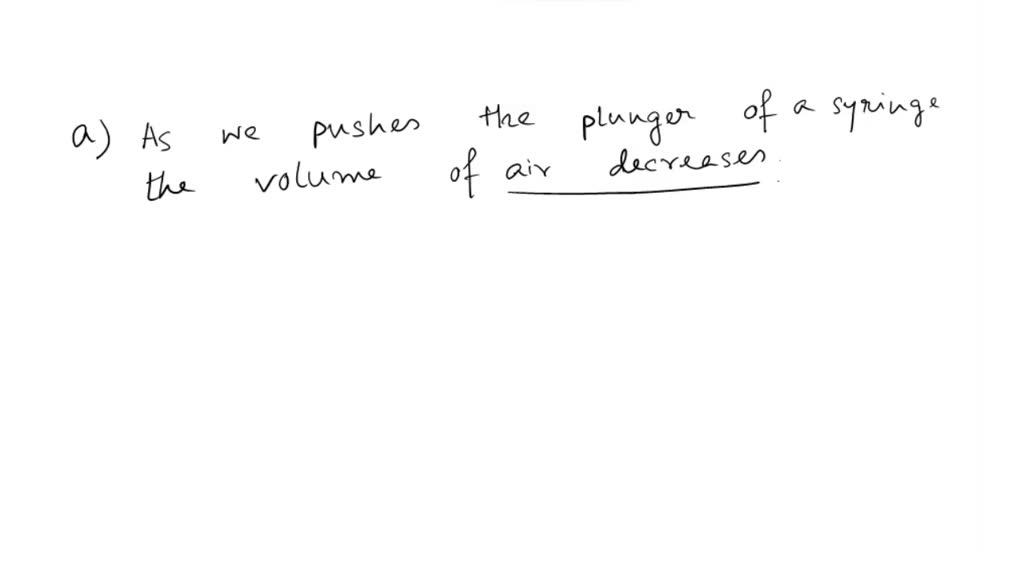 a) As we pushes the plunger of a syringe
the volume of air decreases.